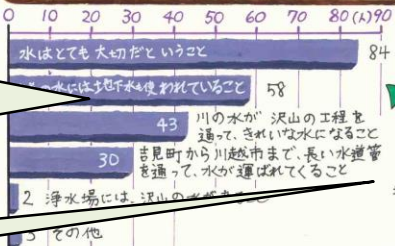 0 10 20 30 40 50 60 70 80 (人) 90
水はとても大切だということ 84
の水には地下水も使われていること 58
43 川の水が 沢山の工程を
通って、きれいな水になること
30 吉見町から川越市まで、長い水道管
を通って、水が運ばれてくること
2 浄水場には、沢山の水が
その他